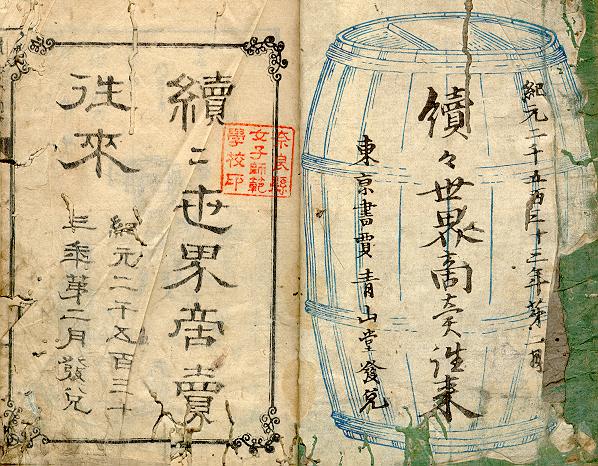 紀元二千五百三十三年第一月
續々世界商賣往来
東京書賈青山堂發兌
奈良縣
女子師範
學校印
續〻世界商賣
往來
紀元二千五百三十
三年第二月發兌